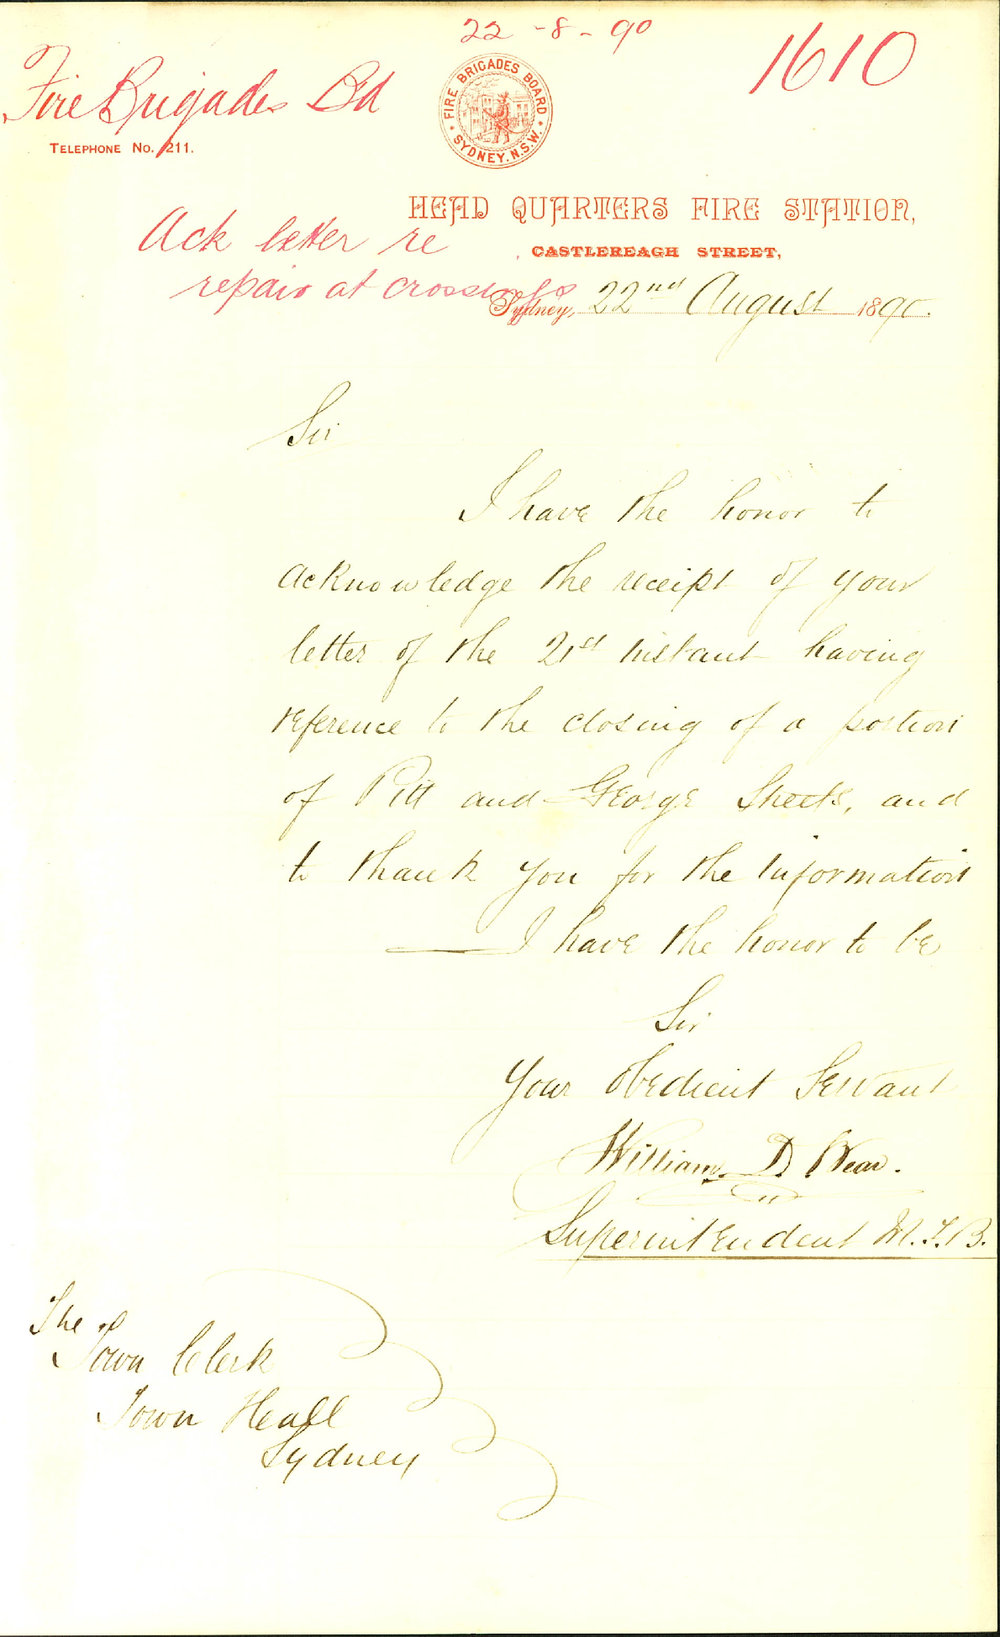 22-8-90
1610
Fire Brigades Bd
FIRE BRIGADES BOARD
SYDNEY. N.S.W.
TELEPHONE No. 211.
HEAD QUARTERS FIRE STATION,
CASTLEREAGH STREET,
Ack letter re
repair at crossings
Sydney, 22nd August 1890.
Sir
I have the honor to
acknowledge the receipt of your
letter of the 21st instant having
reference to the closing of a portion
of Pitt and George Streets, and
to thank you for the information
I have the honor to be
Sir
Your Obedient Servant
William D Bear.
Superintendent M.F.B.
The
Town Clerk
Town Hall
Sydney